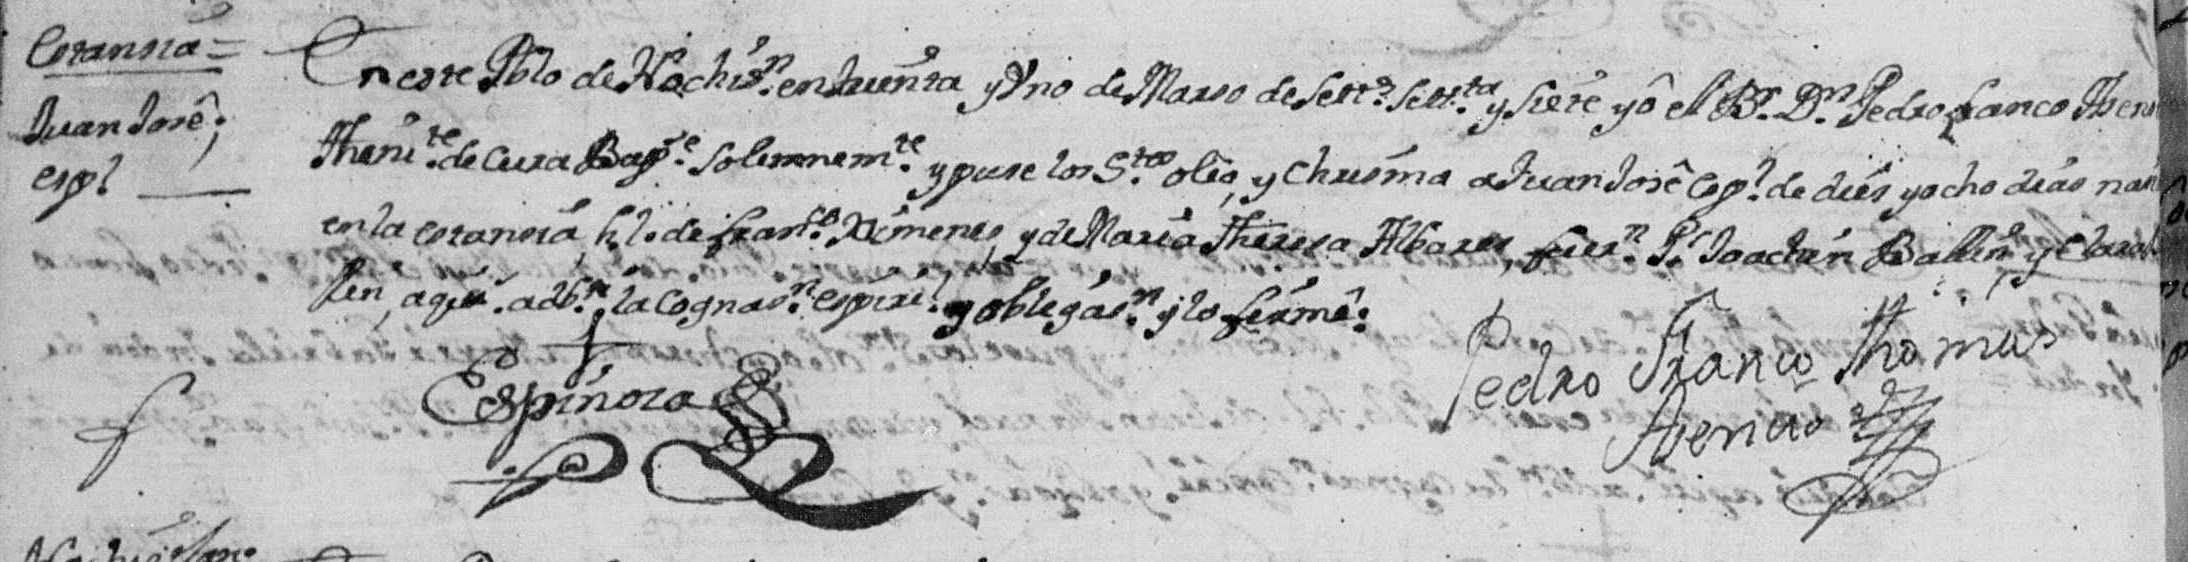 Estansiâ =
Juan Josê;
espl
En este Pblo de Nochisn. en treinta y Uno de Marso de sett.s sett.ta y siete yô el Br. Dn. Pedro franco Asen
Theni.te de Cura Bapt.e Solemnem.te y puse los S.tos olêo, y Chrisma a Juan Josê esp.l de dies y ocho dias
en la estansiâ h. l. de fran.co Ximenes, y de Maria Theresa Albares, fuer.n P.s Joachin Ballin y Clara
lin, a quie. adb.ti la Cognas.n espiri.l y obligas.n y lo firmê.
Espinoza
Pedro Franco Thomas
Asencio